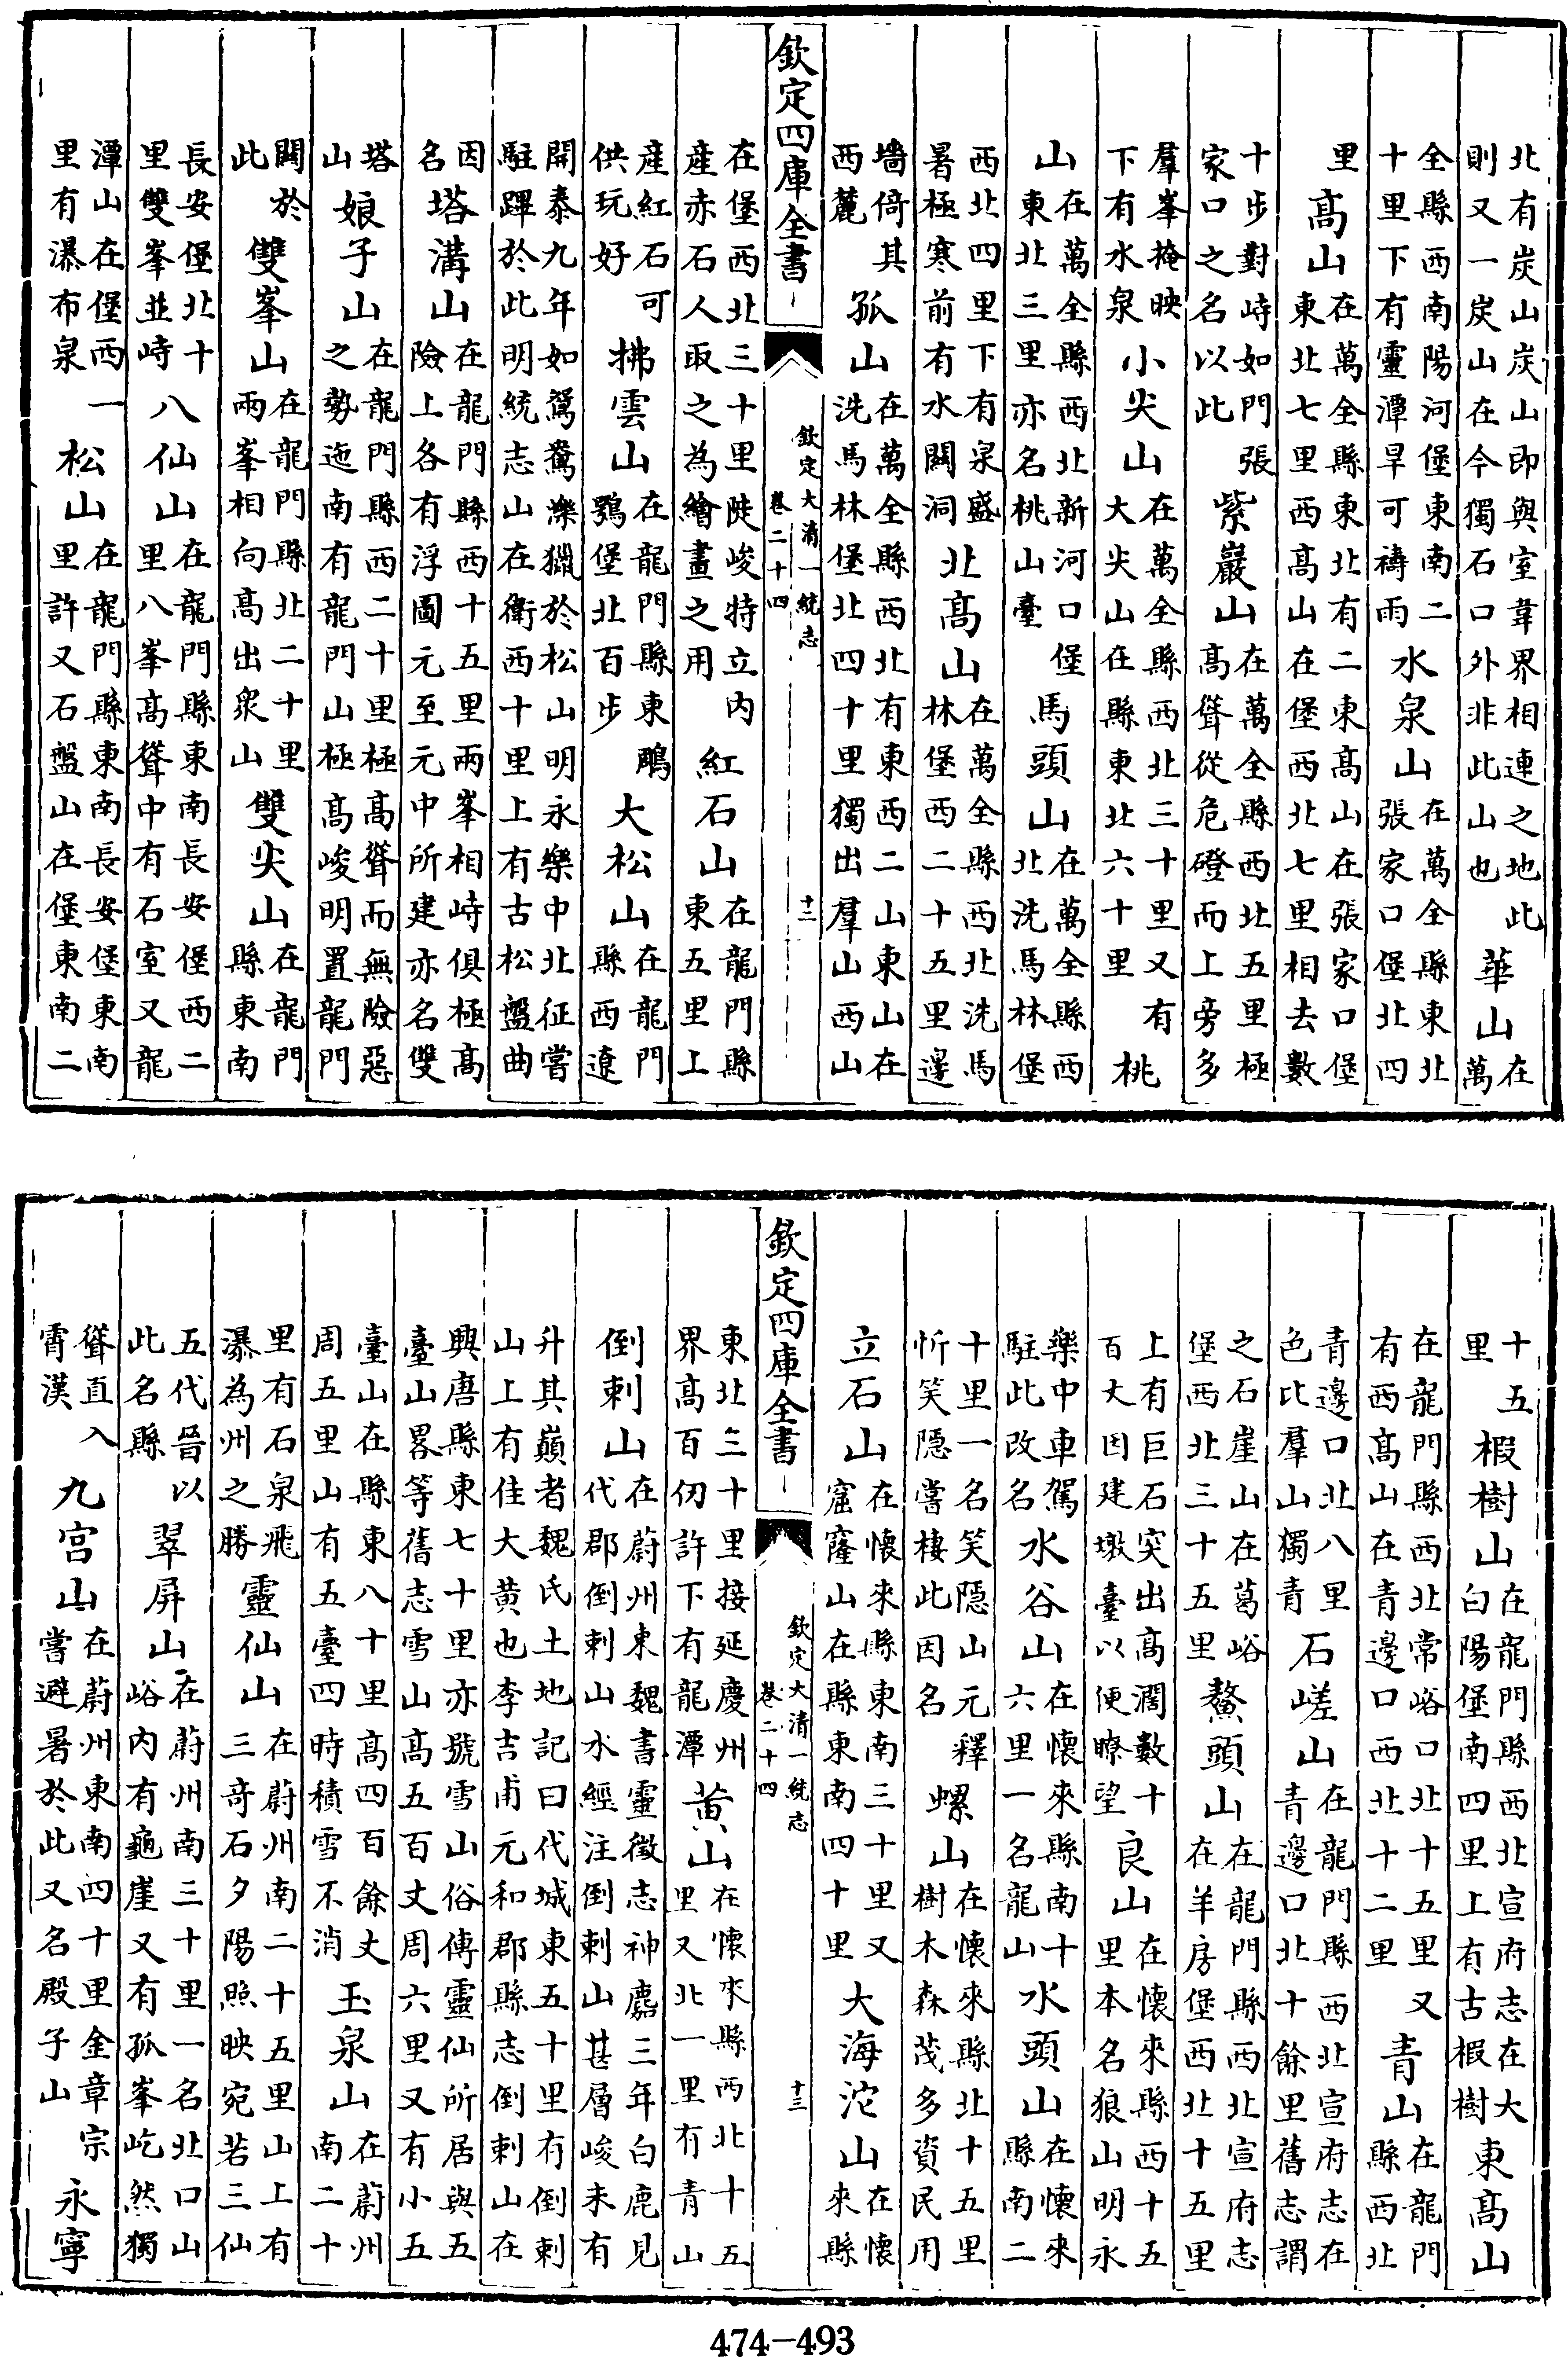 北有炭山炭山即與室韋界相連之地此
則又一炭山在今獨石口外非此山也
華山
在
萬
全縣西南陽河堡東南二
十里下有靈潭旱可禱雨
水泉山
在萬全縣東北
張家口堡北四
里
高山
在萬全縣東北有二東高山在張家口堡
東北七里西高山在堡西北七里相去數
十步對峙如門張
家口之名以此
紫巖山
在萬全縣西北五里極
高聳從危磴而上旁多
羣峯掩映
下有水泉
小尖山
在萬全縣西北三十里又有
大尖山在縣東北六十里
桃
山
在萬全縣西北新河口堡
東北三里亦名桃山臺
馬頭山
在萬全縣西
北洗馬林堡
西北四里下有泉盛
暑極寒前有水關洞
北高山
在萬全縣西北洗馬
林堡西二十五里邊
墻倚其
西麓
孤山
在萬全縣西北有東西二山東山在
洗馬林堡北四十里獨出羣山西山
欽定四庫全書
欽定大清一統志
卷二十四
十二
在堡西北三十里陡峻特立内
產赤石人取之為繪畫之用
紅石山
在龍門縣
東五里上
產紅石可
供玩好
拂雲山
在龍門縣東鵰
鶚堡北百步
大松山
在龍門
縣西遼
開泰九年如鴛鴦濼獵於松山明永樂中北征嘗
駐蹕於此明統志山在衛西十里上有古松盤曲
因
名
塔溝山
在龍門縣西十五里兩峯相峙俱極高
險上各有浮圖元至元中所建亦名雙
塔
山
娘子山
在龍門縣西二十里極高聳而無險惡
之勢迤南有龍門山極高峻明置龍門
關於
此
雙峯山
在龍門縣北二十里
兩峯相向高出衆山
雙尖山
在龍門
縣東南
長安堡北十
里雙峯並峙
八仙山
在龍門縣東南長安堡西二
里八峯高聳中有石室又龍
潭山在堡西一
里有瀑布泉
松山
在龍門縣東南長安堡東南
里許又石盤山在堡東南二
十五
里
椵樹山
在龍門縣西北宣府志在大
白陽堡南四里上有古椵樹
東高山
在龍門縣西北常峪口北十五里又
有西高山在青邊口西北十二里
青山
在龍門
縣西北
青邊口北八里
色比羣山獨青
石嵯山
在龍門縣西北宣府志在
青邊口北十餘里舊志謂
之石崖山在葛峪
堡西北三十五里
鰲頭山
在龍門縣西北宣府志
在羊房堡西北十五里
上有巨石突出高濶數十
百丈因建墩臺以便瞭望
良山
在懷來縣西十五
里本名狼山明永
樂中車駕
駐此改名
水谷山
在懷來縣南十
六里一名龍山
水頭山
在懷來
縣南二
十里一名笑隱山元釋
忻笑隱嘗棲此因名
螺山
在懷來縣北十五里
樹木森茂多資民用
立石山
在懷來縣東南三十里又
窟窿山在縣東南四十里
大海沱山
在懷
來縣
欽定四庫全書
欽定大清一統志
卷二十四
十三
東北三十里接延慶州
界高百仞許下有龍潭
黄山
在懷來縣西北十五
里又北一里有青山
倒刺山
在蔚州東魏書靈徵志神䴥三年白鹿見
代郡倒刺山水經注倒刺山甚層峻未有
升其巔者魏氏土地記曰代城東五十里有倒刺
山上有佳大黄也李吉甫元和郡縣志倒刺山在
興唐縣東七十里亦號雪山俗傳靈仙所居與五
臺山畧等舊志雪山高五百丈周六里又有小五
臺山在縣東八十里高四百餘丈
周五里山有五臺四時積雪不消
玉泉山
在蔚州
南二十
里有石泉飛
瀑為州之勝
靈仙山
在蔚州南二十五里山上有
三奇石夕陽照映宛若三仙
五代晉以
此名縣
翠屏山
在蔚州南三十里一名北口山
峪内有龜崖又有孤峯屹然獨
聳直入
霄漢
九宫山
在蔚州東南四十里金章宗
嘗避暑於此又名殿子山
永寧
474-493